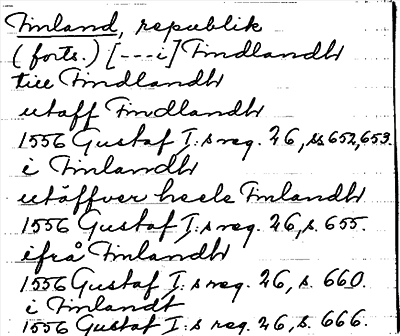 Finland, republik
(forts.) [---i] Findlandh
till Findlandh
utaff Findlandh
1556 Gustaf I:s reg. 26, ss 652, 653.
i Finlandh
utöffver heele Finlandh
1556 Gustaf I:s reg. 26, s. 655.
ifrå Finlandh
1556 Gustaf I:s reg. 26, s. 660.
i Finlandt
1556 Gustaf I:s reg. 26, s. 666.